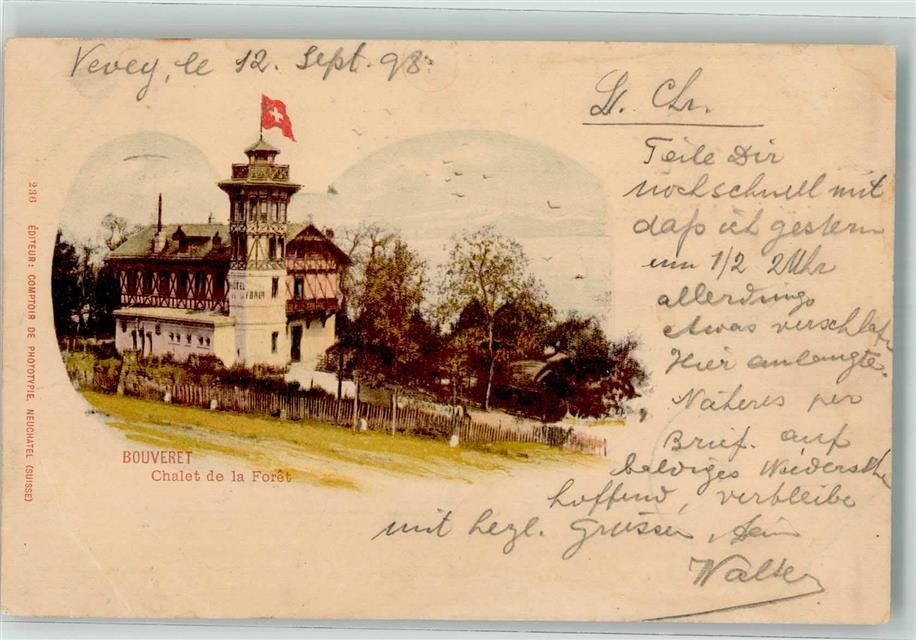 Vevey, le 12. Sept. 98.
L. Chr.
Teile Dir
noch schnell mit
daß ich gestern
um 1/2 2 Uhr
allerdings
etwas verschlaf
hier anlangte.
Näheres per
Brief. auf
baldiges Wiederseh
hoffend, verbleibe
mit herzl. Grüssen, Dein
Walter
HOTEL
FORET
BOUVERET
Chalet de la Forêt
236 ÉDITEUR: COMPTOIR DE PHOTOTYPIE, NEUCHATEL (SUISSE)